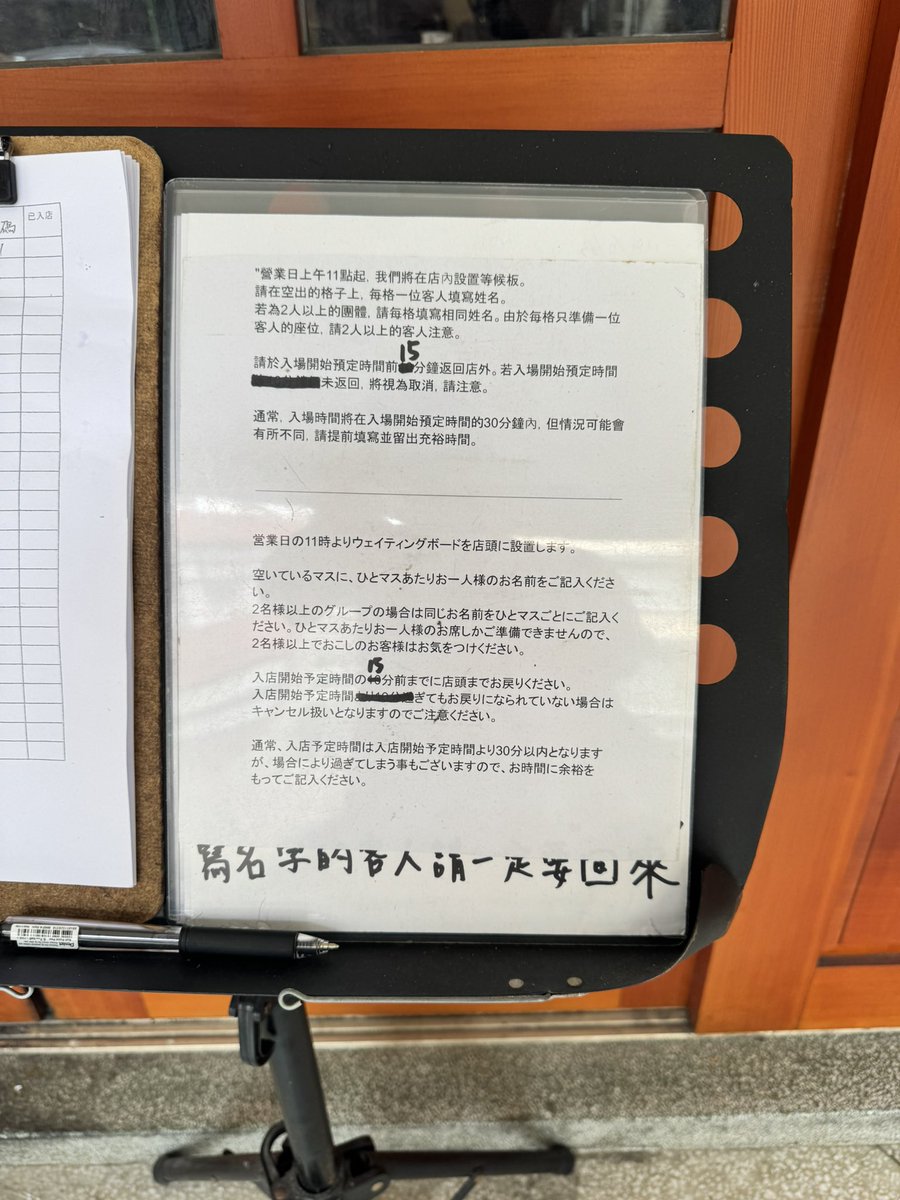 已入店
碼
"營業日上午11點起, 我們將在店內設置等候板。
請在空出的格子上, 每格一位客人填寫姓名。
若為2人以上的團體, 請每格填寫相同姓名。由於每格只準備一位
客人的座位, 請2人以上的客人注意。
請於入場開始預定時間前15分鐘返回店外。若入場開始預定時間
未返回, 將視為取消, 請注意。
通常, 入場時間將在入場開始預定時間的30分鐘內, 但情況可能會
有所不同, 請提前填寫並留出充裕時間。
営業日の11時よりウェイティングボードを店頭に設置します。
空いているマスに、ひとマスあたりお一人様のお名前をご記入くださ
い。
2名様以上のグループの場合は同じお名前をひとマスごとにご記入く
ださい。ひとマスあたりお一人様のお席しかご準備できませんので、
2名様以上でおこしのお客様はお気をつけください。
入店開始予定時間の15分前までに店頭までお戻りください。
入店開始予定時間ぎてもお戻りになられていない場合は
キャンセル扱いとなりますのでご注意ください。
通常、入店予定時間は入店開始予定時間より30分以内となります
が、場合により過ぎてしまう事もございますので、お時間に余裕を
もってご記入ください。
寫名字的客人請一定要回來